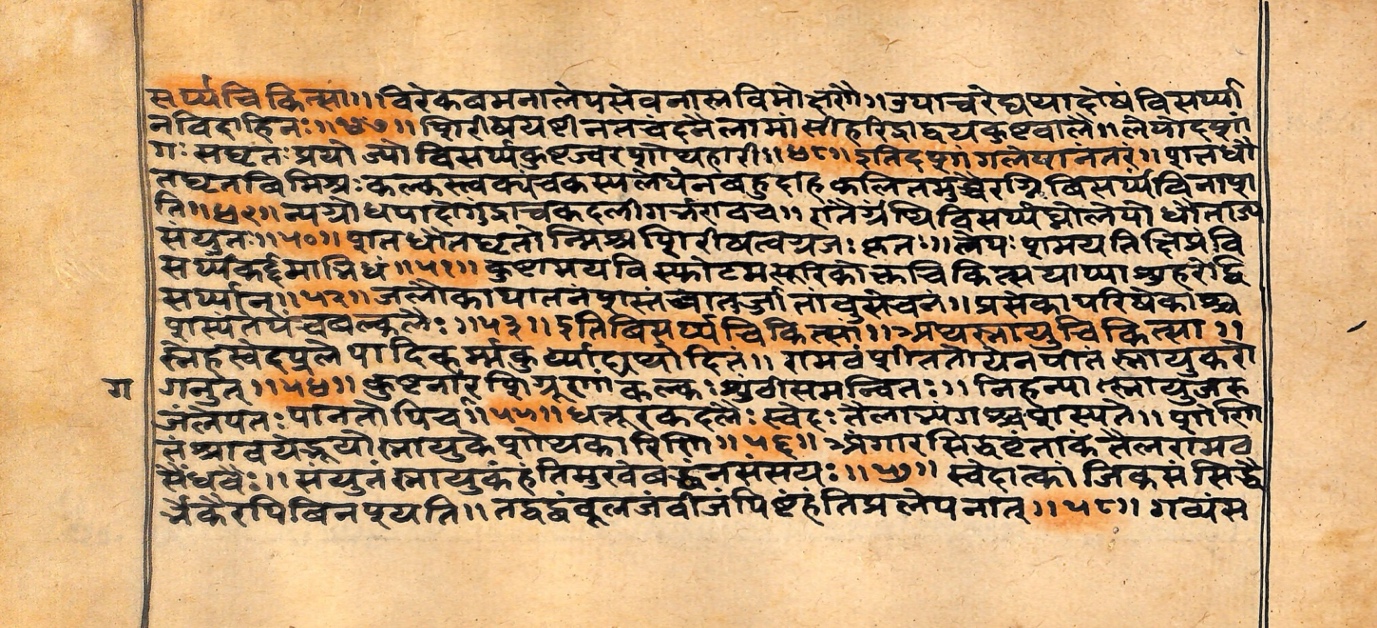 सर्प्पचिकित्सा॥॥विरेकवमनालेपसेवनास्रविमोक्षणैः॥उपाचरेद्यथादोषं विसर्प्पा
नविदाहिनः॥४७॥शिरीषयष्टीनतचंदनैलामांसीहरिद्राद्वयकुष्टवालैः॥लेपोदशां
गः सघृतः प्रयोज्यो विसर्प्पकुष्टज्वरशोथहारी॥४८॥इतिदशांगलेपानंतरं॥शतधौ
तघृतविमिश्रः कल्कस्त्वक्पंचकस्यलेपेन बहुदाहकलितमुच्चैरग्निविसर्प्पंविनाश
ति॥४९॥न्यग्रोधपादोगुंद्राचकदलीगर्भरावच॥एतैर्ग्रंथिविसर्प्पघ्नोलेपोधौताज्य
सयुतः॥५०॥शतधौतघृतोन्मिश्रशिरीषत्वग्रजः कृतः॥लेपः शमयतिक्षिप्रं वि
सर्प्पकर्द्दमाभिधं॥५१॥कुष्टामयविस्फोटमसूरिकोक्तचिकित्सयाप्याशुहरेद्वि
सर्प्पान्॥५२॥जलौकापातनंशस्तं चातुर्जातांबुसेचनं॥प्रसेकापरिषेकाश्च
शस्यंतेपंचवल्कलैः॥५३॥इतिविसर्प्पचिकित्सा॥अथस्नायुचिकित्सा॥
स्नेहस्वेदप्रलेपादिकर्म्मकुर्य्याद्यथोदितं॥रामवंशीततोयेनपीतं स्नायुकरो
ग
गनुत्॥५४॥कुष्टनागरशिग्रूणां कल्कः शुंवीसमन्वितः॥निहन्या स्नायुजरु
जंलेपतः पानतोपिच॥५५॥धत्तूरकदलैः स्वेदः तैलाभ्यंगश्चशस्यते॥शोणि
तंश्रावयेद्भूयोस्नायुकेशोथकारिणि॥५६॥अंगारसिद्धवृंताकं तैलरामव
सैंधवैः॥संयुतंस्नायुकंहंतिमुखेबद्धंनसंसयः॥५७॥स्वेदात्कांजिकसंसिद्धै
र्भेकैरपिविनश्यति॥तद्वद्बंवूलजंवीजंपिष्टंहंतिप्रलेपनात्॥५८॥गव्यंस